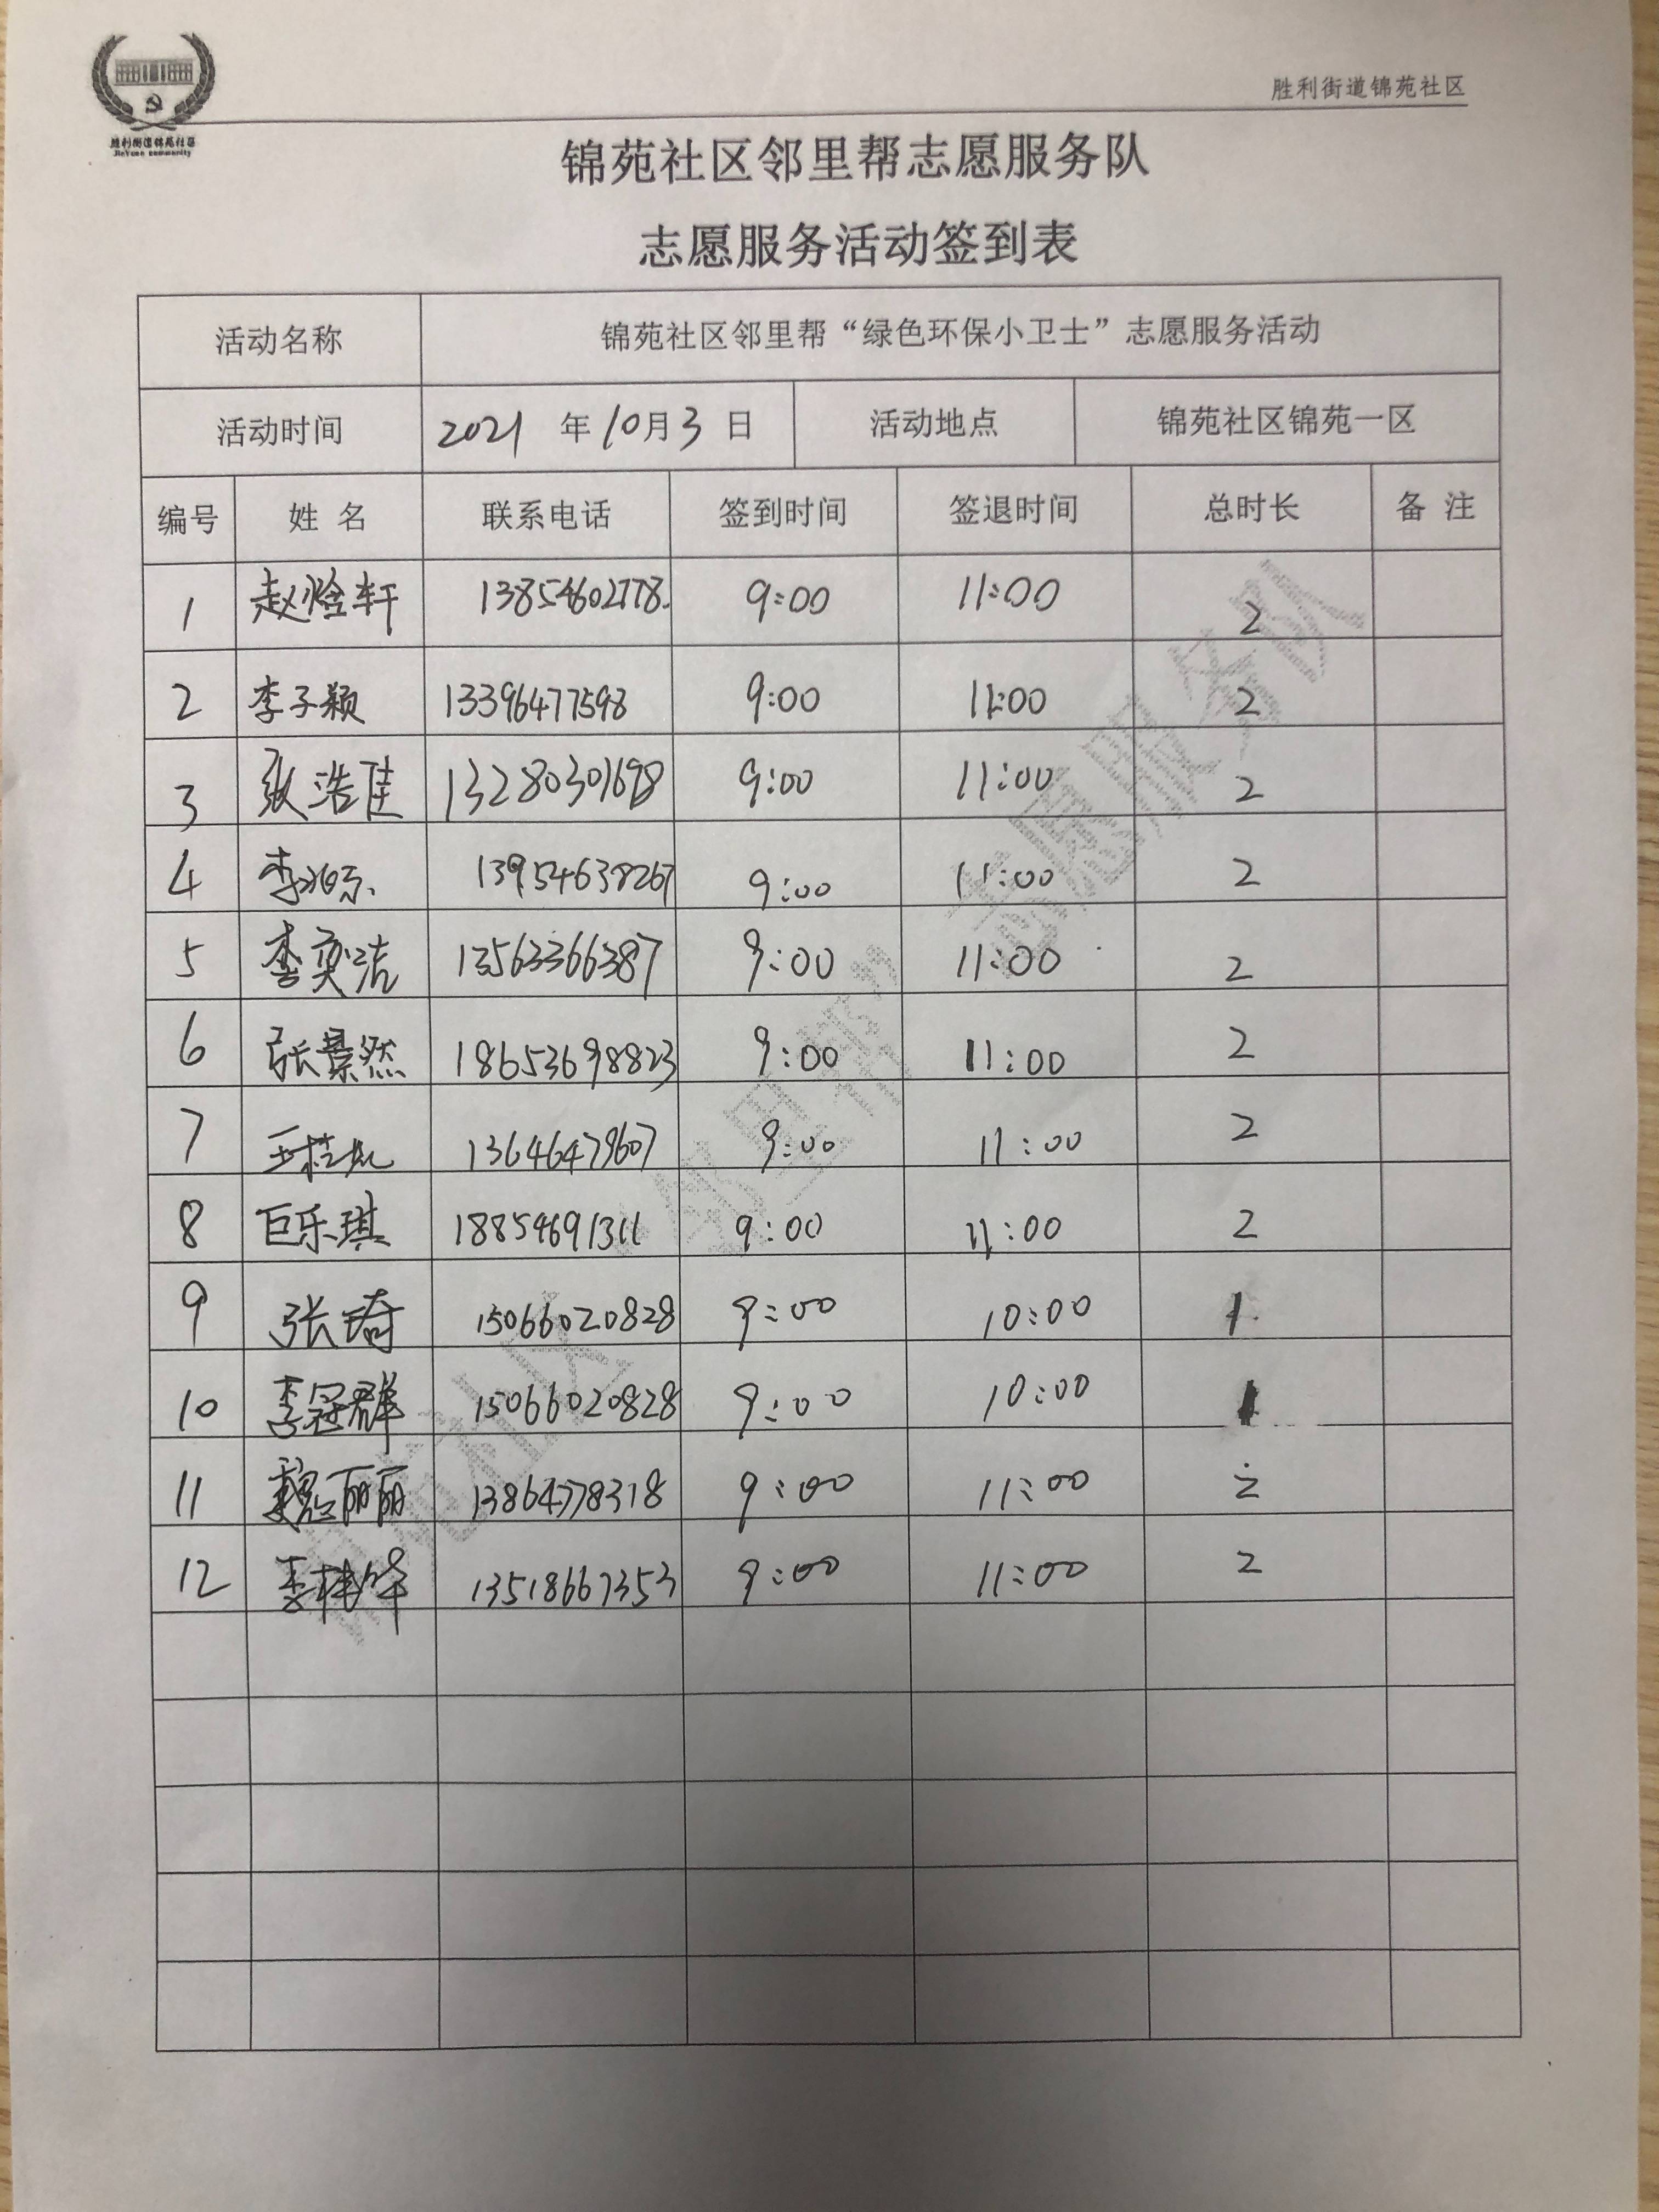 胜利街道锦苑社区
JinYuan community
胜利街道锦苑社区
锦苑社区邻里帮志愿服务队
志愿服务活动签到表
活动名称 锦苑社区邻里帮“绿色环保小卫士”志愿服务活动
活动时间 2021 年 10月 3 日 活动地点 锦苑社区锦苑一区
编号 姓 名 联系电话 签到时间 签退时间 总时长 备 注
1 赵焓轩 13854602778 9:00 11:00 2
2 李子颖 13396477598 9:00 11:00 2
3 张浩佳 13280301698 9:00 11:00 2
4 13954638267 9:00 11:00 2
5 李奕洁 13563366387 9:00 11:00 2
6 张景然 18653698823 9:00 11:00 2
7 13646479607 9:00 11:00 2
8 巨乐琪 18854691311 9:00 11:00 2
9 张琦 15066020828 9:00 10:00 1
10 李冠群 15066020828 9:00 10:00 1
11 魏丽丽 13864778318 9:00 11:00 2
12 13518667353 9:00 11:00 2
锦苑社区“邻里帮”志愿服务队